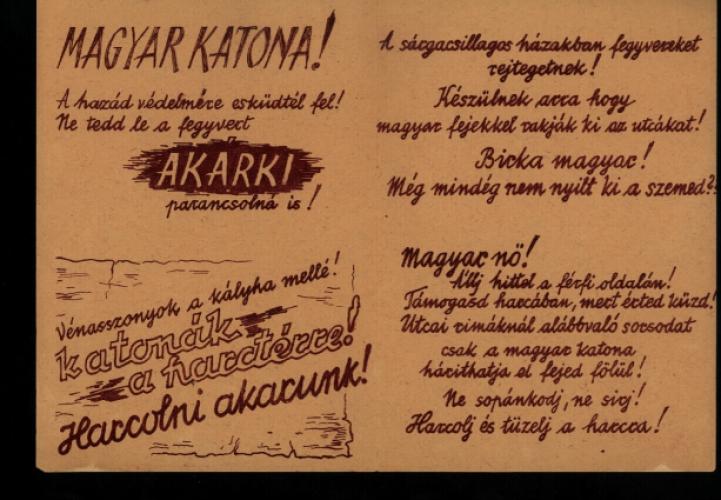 MAGYAR KATONA!
A hazád védelmére esküdtél fel!
Ne tedd le a fegyvert
AKÁRKI
parancsolná is!
Vénasszonyok a kályha mellé!
katonák
a harctérre!
Harcolni akarunk!
A sárgacsillagos házakban fegyvereket
rejtegetnek!
Készülnek arra hogy
magyar fejekkel rakják ki az utcákat!
Birka magyar!
Még mindég nem nyilt ki a szemed?
Magyar nő!
Állj hittel a férfi oldalán!
Támogasd harcában, mert érted küzd!
Utcai rimáknál alábbvaló sorsodat
csak a magyar katona
háríthatja el fejed fölül!
Ne sopánkodj, ne sirj!
Harcolj és tüzelj a harcra!